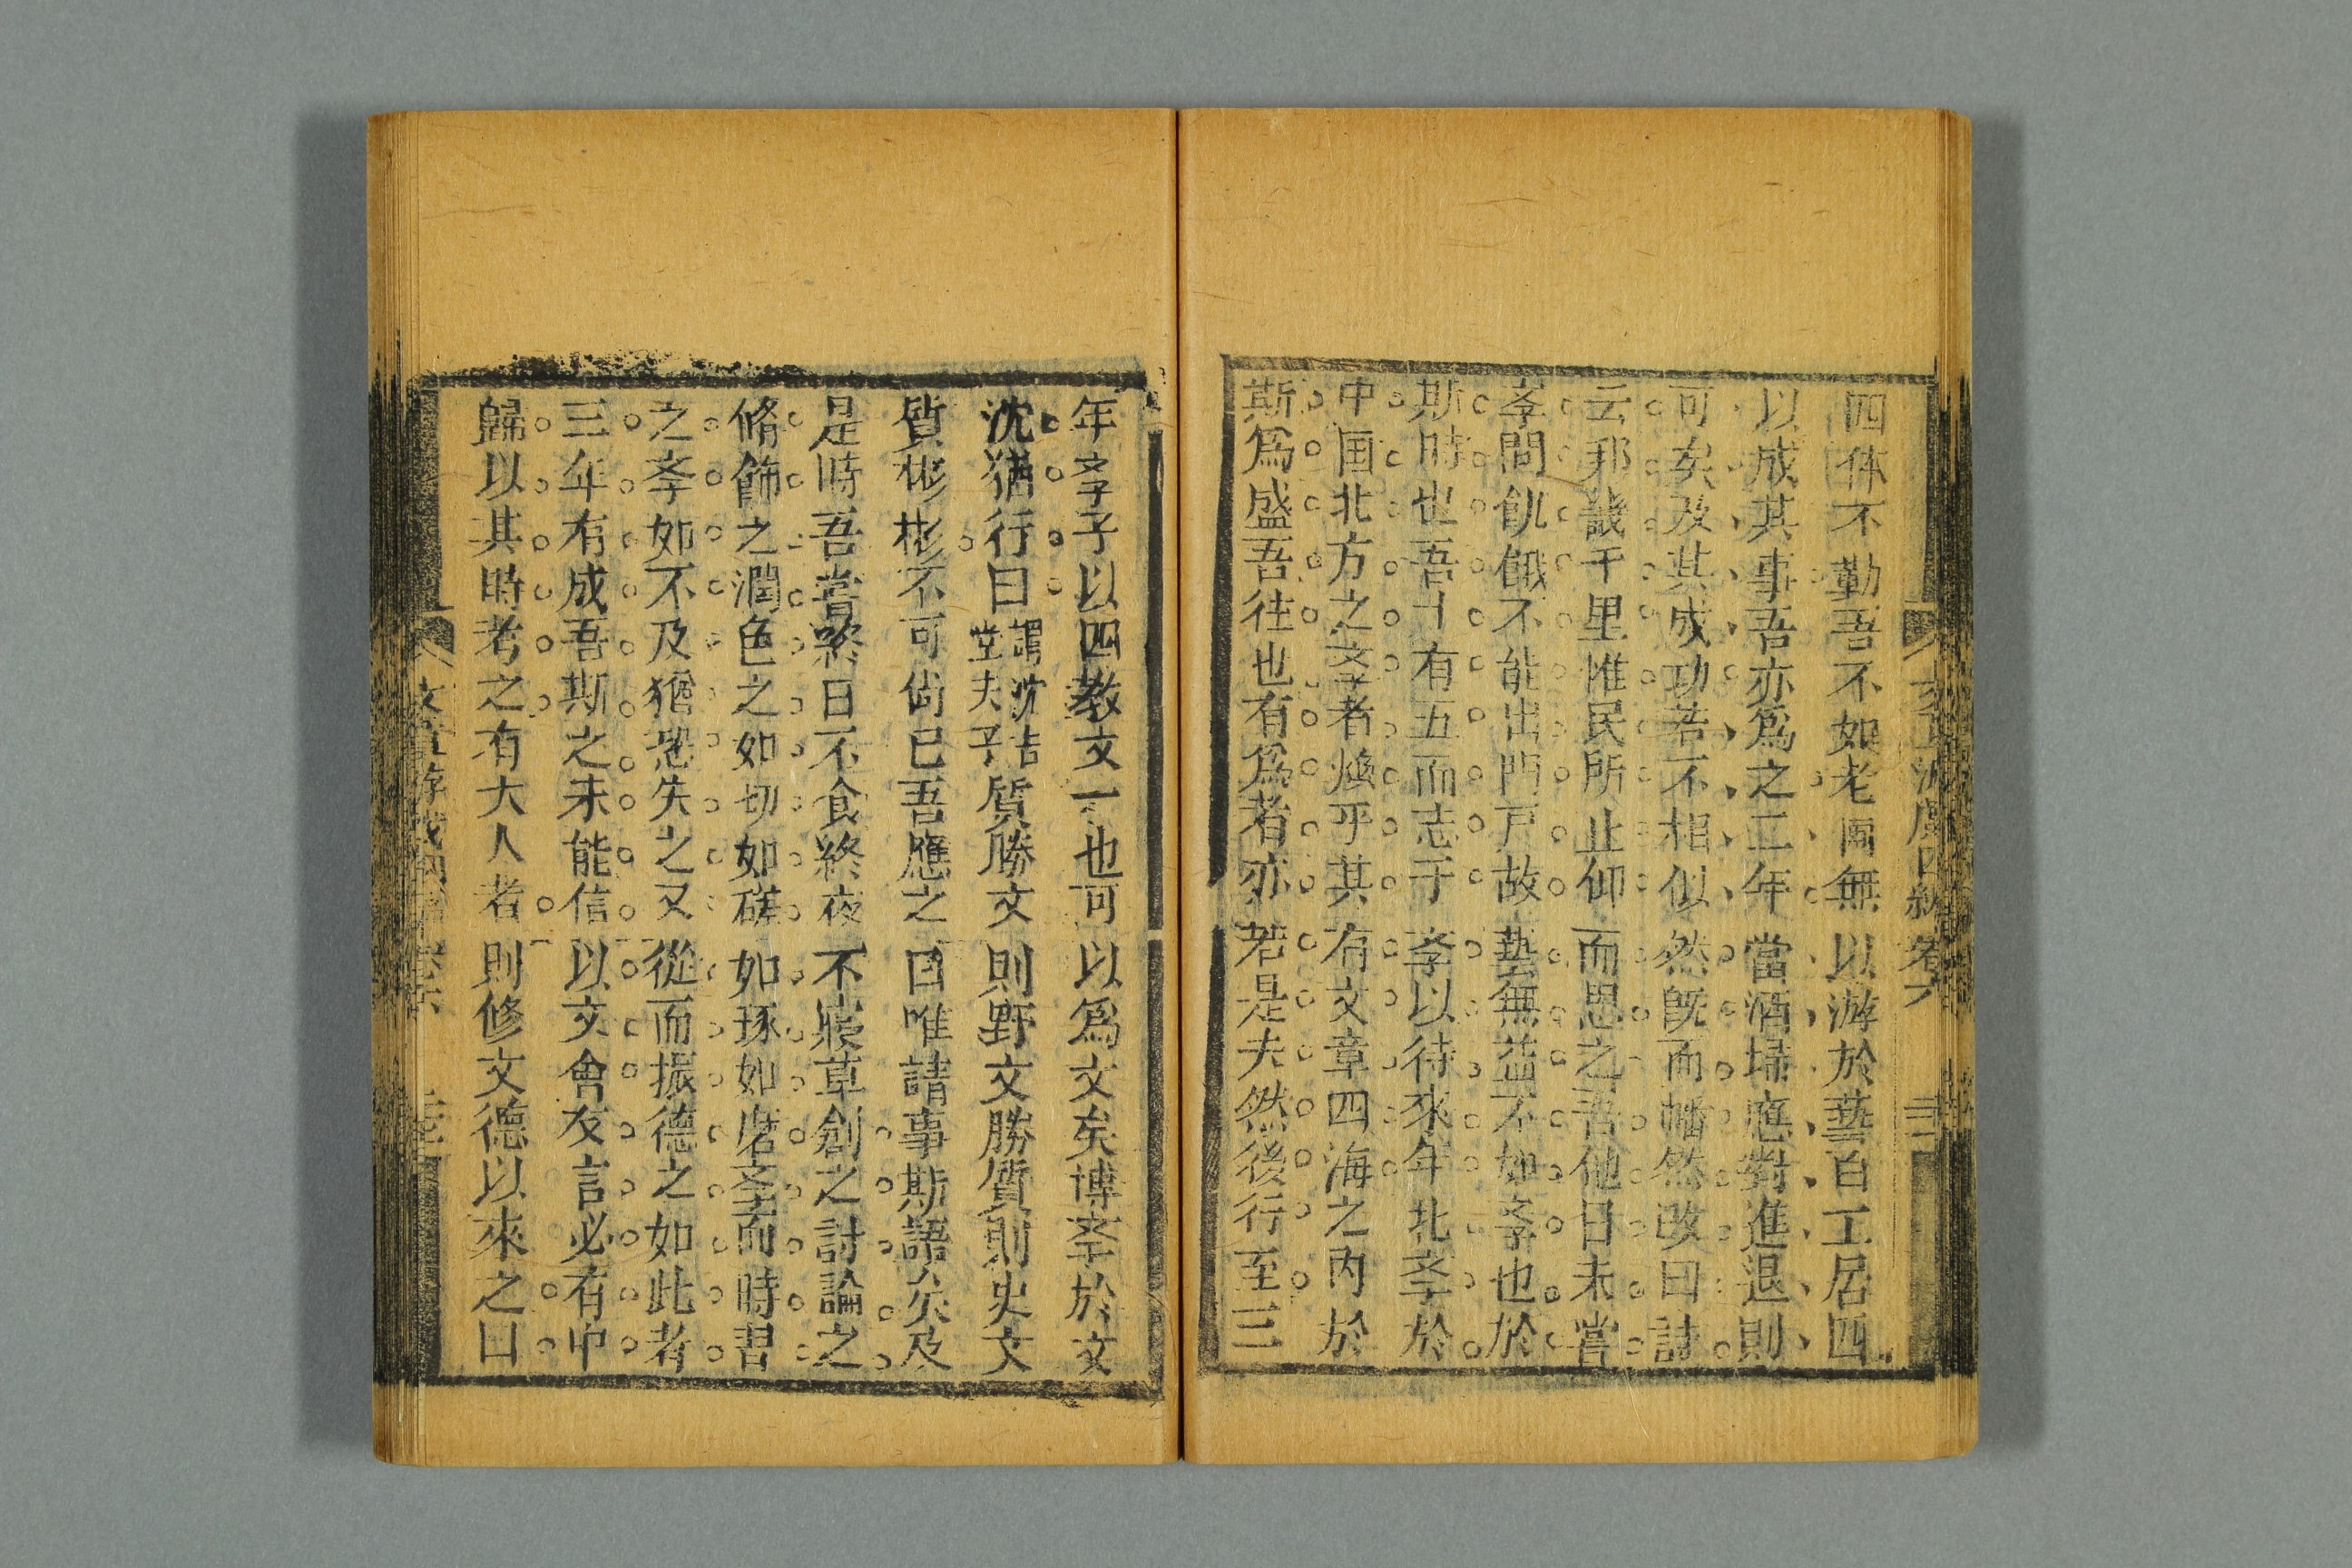 四体不勤吾不如老圃無以游於藝百工居四
以成其事吾亦爲之二年當洒埽應對進退則
可矣及其成功若不相似然既而幡然改曰詩
云邦畿千里惟民所止仰而思之吾他日未嘗
斈間飢餓不能出門戸故藝無益不如斈也於
斯時也吾十有五而志于斈以待來年北斈於
中国北方之斈者煥乎其有文章四海之内於
斯爲盛吾往也有爲者亦若是夫然後行至三
年斈子以四教文一也可以爲文矣博斈於文
沈猶行曰謂沈吉堂夫子質勝文則野文勝質則史文
質彬彬不可尙已吾應之曰唯請事斯語矣及
是時吾嘗終日不食終夜不寢草創之討論之
脩飾之潤色之如切如磋如琢如磨斈而時習
之斈如不及猶恐失之又從而振德之如此者
三年有成吾斯之未能信以文會友言必有中
歸以其時考之有大人者則修文德以來之曰
卷六